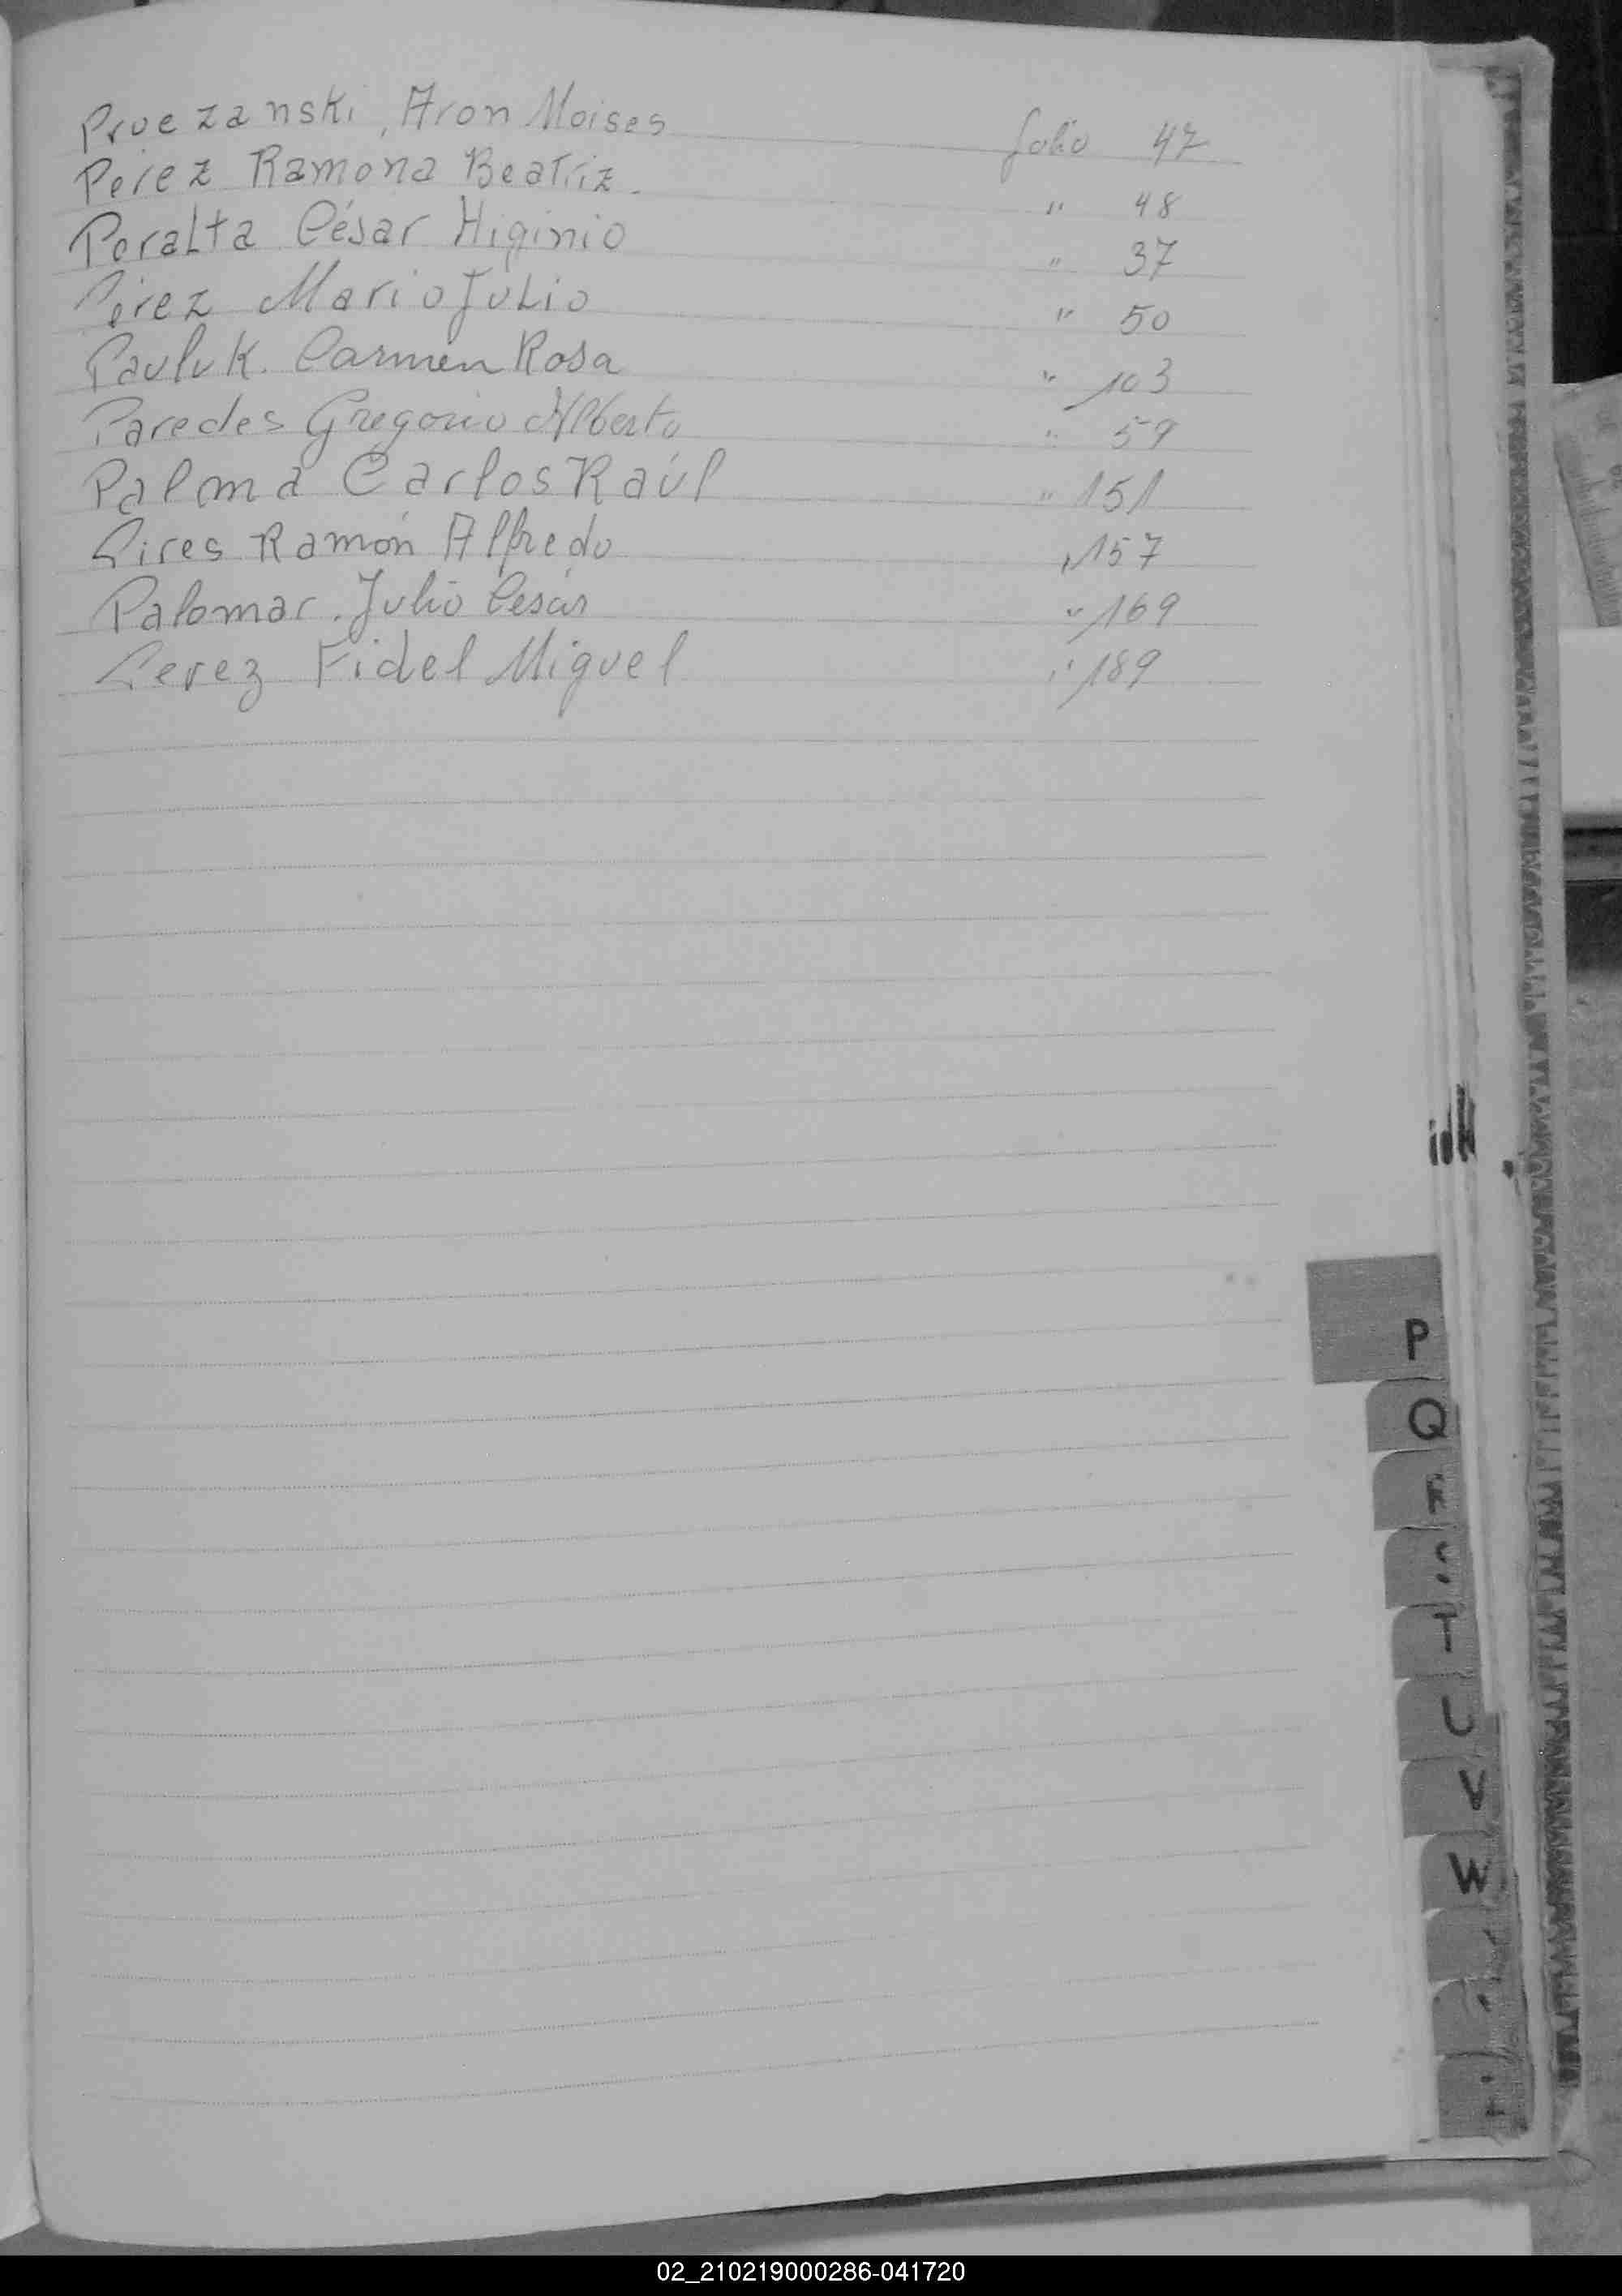 Pruezanski, Aron Moises folio 47
Pérez Ramona Beatriz. " 48
Peralta César Higinio " 37
Pérez Mario Julio " 50
Pauluk. Carmen Rosa " 103
Paredes Gregorio Alberto " 59
Palma Carlos Raúl " 151
Pires Ramón Alfredo " 157
Palomar. Julio César " 169
Perez Fidel Miguel " 189
P
Q
R
S
T
U
V
W
02_210219000286-041720